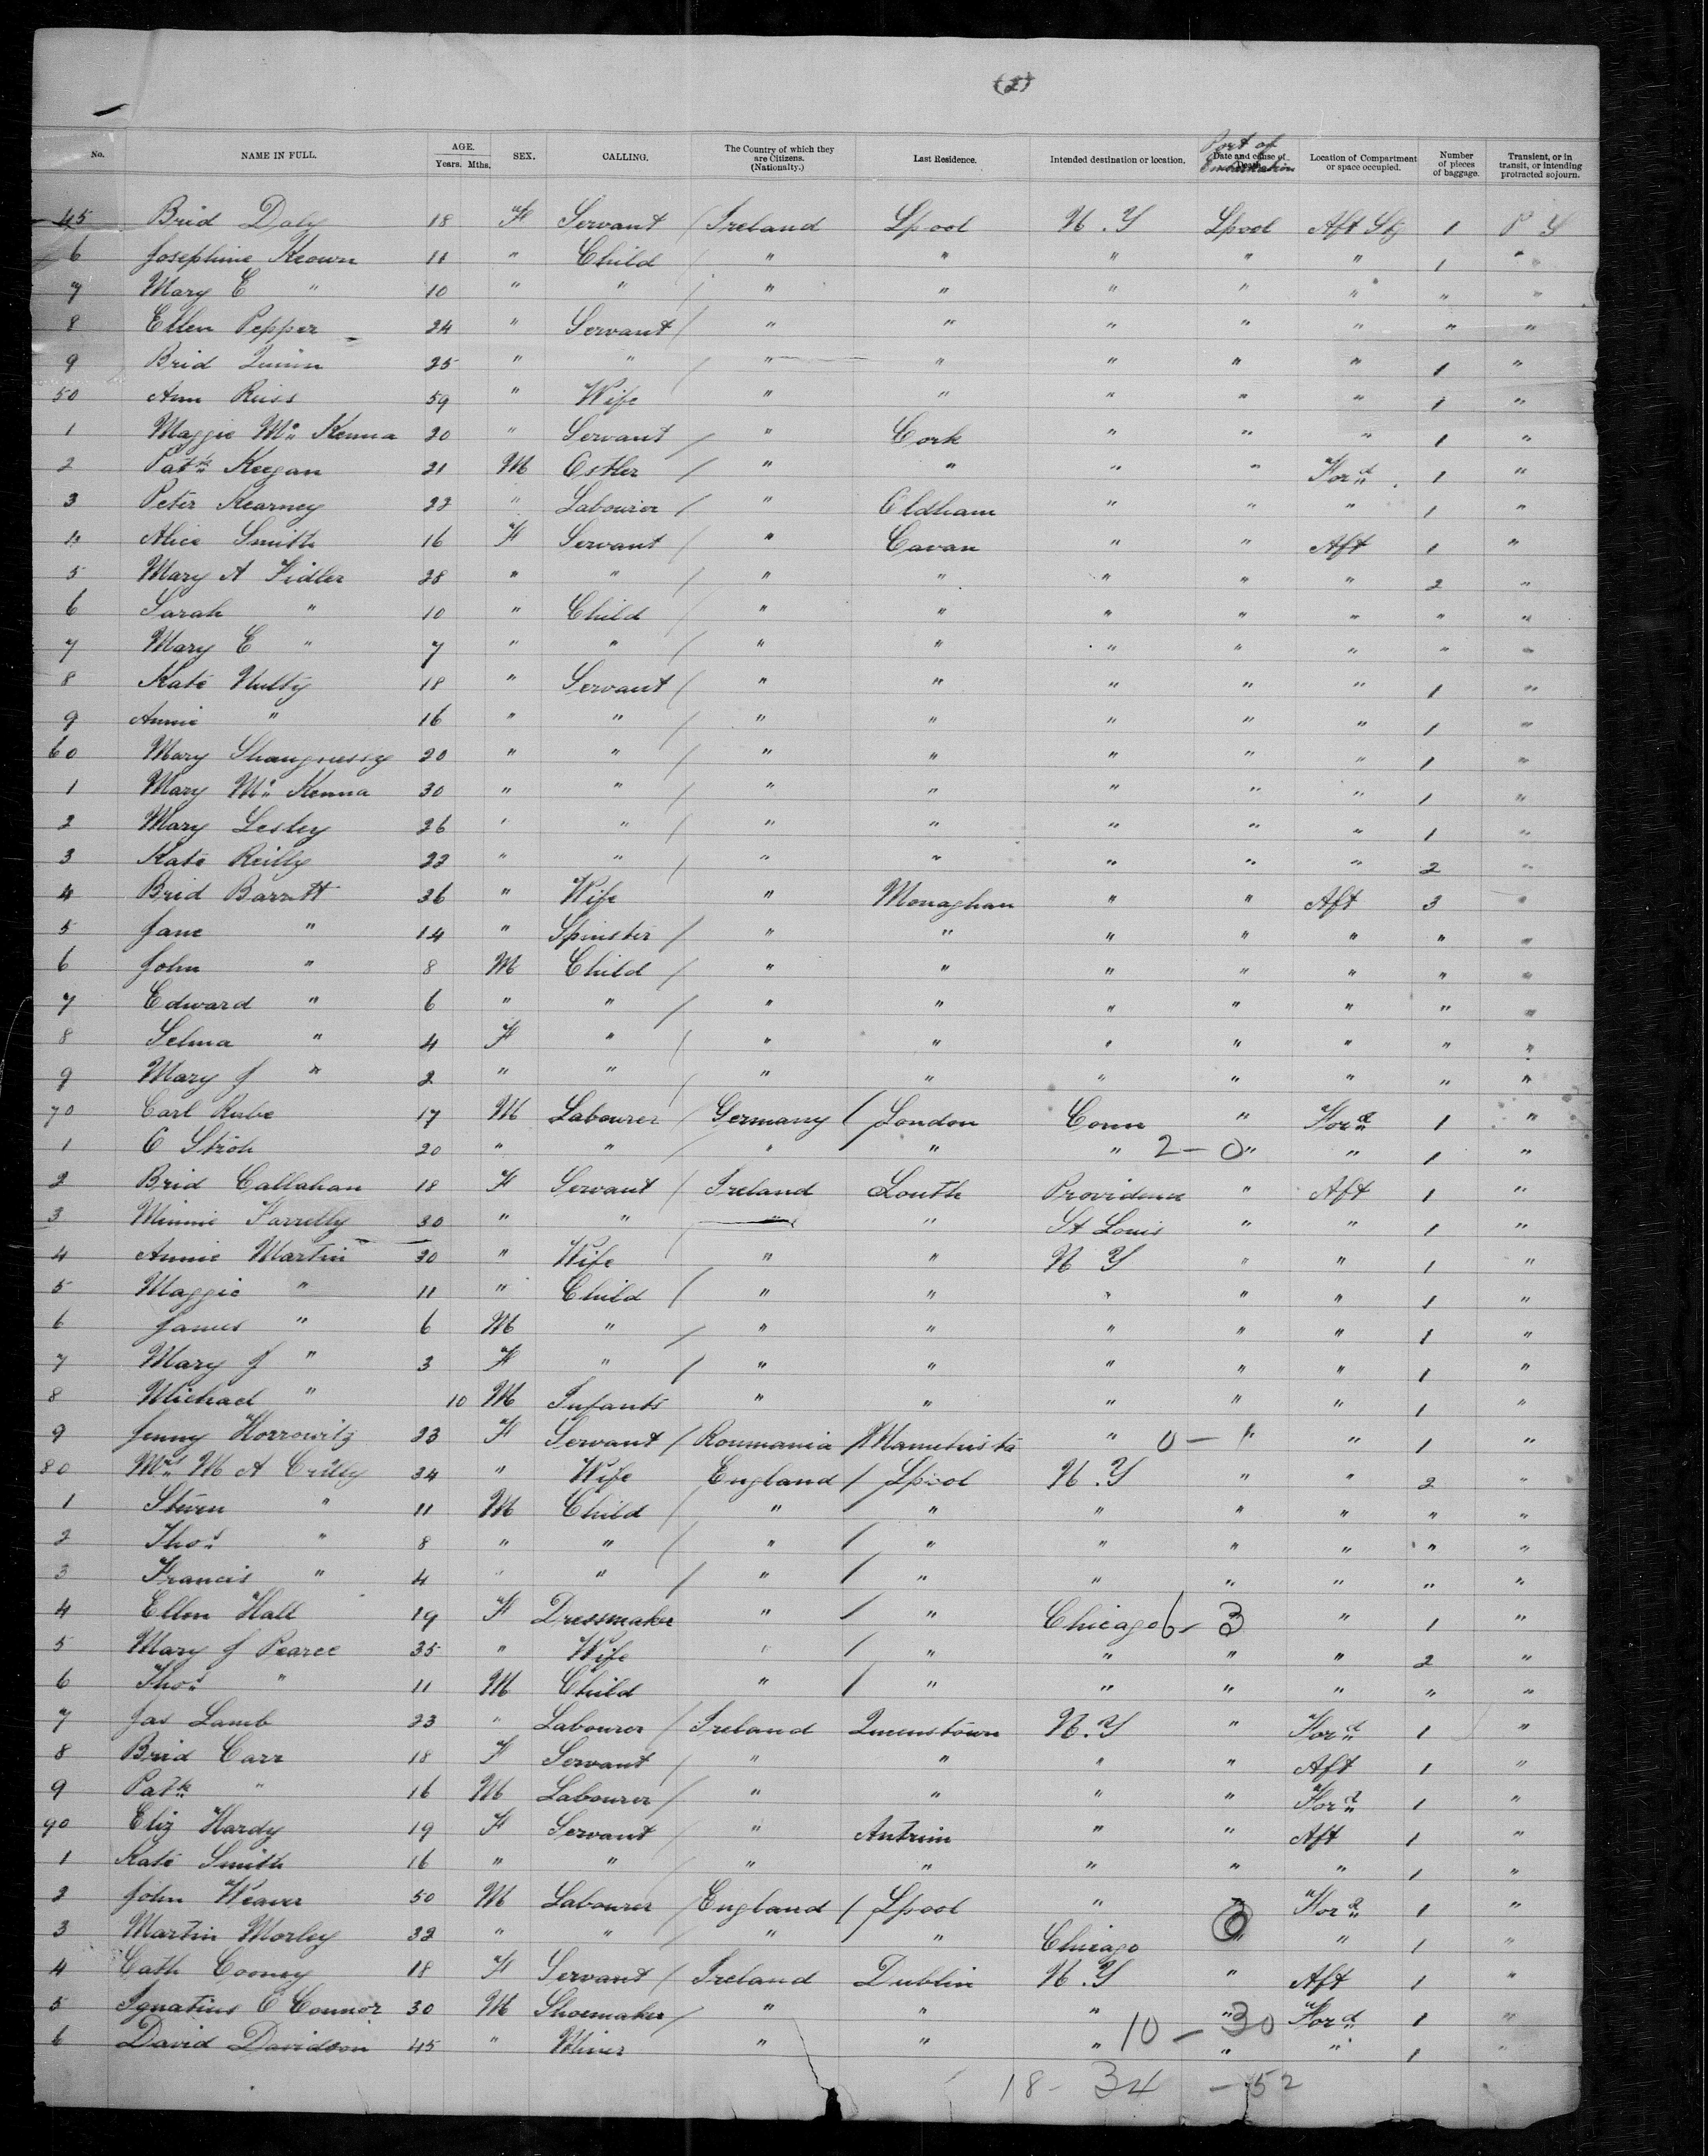 (2)
No. NAME IN FULL. AGE. Years. Mths. SEX. CALLING. The Country of which they are Citizens. (Nationalty.) Last Residence. Intended destination or location. Date and cause of Death. Port of Embarkation Location of Compartment or space occupied. Number of pieces of baggage. Transient, or in transit, or intending protracted sojourn.
45 Brid Daly 18 F Servant / Ireland Lpool N.Y Lpool Aft Stg 1 P S
6 Josephine Keown 11 " Child / " " " " " 1 "
7 Mary E " 10 " " / " " " " " " "
8 Ellen Pepper 24 " Servant / " " " " " " "
9 Brid Quinn 25 " " / " " " " " 1 "
50 Ann Russ 59 " Wife " " " " " 1 "
1 Maggie Mc Kenna 20 " Servant / " Cork " " " 1 "
2 Patk Keegan 21 M Ostler / " " " " Ford 1 "
3 Peter Kearney 22 " Labourer / " Oldham " " " 1 "
4 Alice Smith 16 F Servant / " Cavan " " Aft 1 "
5 Mary A Fidler 28 " " / " " " " " 2 "
6 Sarah " 10 " Child / " " " " " " "
7 Mary E " 7 " " / " " " " " " "
8 Kate Nulty 18 " Servant / " " " " " 1 "
9 Annie " 16 " " / " " " " " 1 "
60 Mary Shaugnessy 20 " " / " " " " " 1 "
1 Mary Mc Kenna 30 " " / " " " " " 1 "
2 Mary Lesley 26 " " / " " " " " 1 "
3 Kate Reilly 22 " " / " " " " " 2 "
4 Brid Barrett 36 " Wife " Monaghan " " Aft 3 "
5 Jane " 14 " Spinster / " " " " " " "
6 John " 8 M Child / " " " " " " "
7 Edward " 6 " " / " " " " " " "
8 Selma " 4 F " / " " " " " " "
9 Mary J " 2 " " / " " " " " " "
70 Carl Rabe 17 M Labourer / Germany / London Conn " Ford 1 "
1 C Stroh 20 " " / " " " 2 - 0 " " 1 "
2 Brid Callahan 18 F Servant / Ireland Louth Providence " Aft 1 "
3 Minnie Farrelly 30 " " " " St Louis " " 1 "
4 Annie Martin 30 " Wife " " N Y " " 1 "
5 Maggie " 11 " Child / " " " " " 1 "
6 James " 6 M " / " " " " " 1 "
7 Mary J " 3 F " / " " " " " 1 "
8 Michael " 10 M Infants " " " " " 1 "
9 Jenny Horrowitz 23 F Servant / Roumania / " 0 - 1 " " 1 "
80 Mrs M A Crilly 34 " Wife England / Lpool N.Y " " 2 "
1 Steven " 11 M Child / " / " " " " " "
2 Thos " 8 " " / " / " " " " " "
3 Francis " 4 " " / " / " " " " " "
4 Ellen Hall 19 F Dressmaker " / " Chicago 6 - 3 " 1 "
5 Mary J Pearce 35 " Wife " / " " " " 2 "
6 Thos " 11 M Child " / " " " " " "
7 Jas Lamb 23 " Labourer / Ireland Queenstown N.Y " Ford 1 "
8 Brid Carr 18 F Servant / " " " " Aft 1 "
9 Patk " 16 M Labourer / " " " " Ford 1 "
90 Eliz Hardy 19 F Servant / " Antrim " " Aft 1 "
1 Kate Smith 16 " " / " " " " " 1 "
2 John Weaver 50 M Labourer / England / Lpool " " Ford 1 "
3 Martin Morley 32 " " / " / " Chicago " " 1 "
4 Cath Cooney 18 F Servant / Ireland Dublin N.Y " Aft 1 "
5 Ignatius O Connor 30 M Shoemaker / " " " " Ford 1 "
6 David Davidson 45 " Miner " " " 10 - 30 " " 1 "
18 - 34 - 52